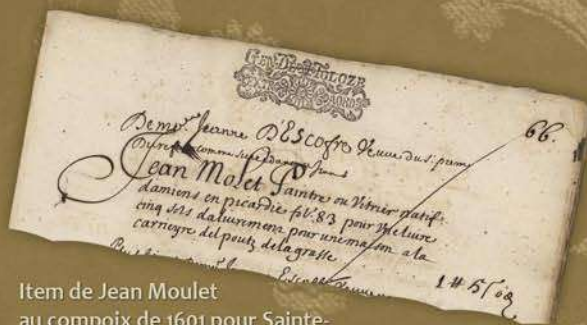 GEN. DE TOLOZE
66.
Demo.lle Jeanne D'Escofre Veuve du s.r
comme
Jean Molet Paintre ou Vitrier natif
damiens en picardie fol. 83 pour Vne liure
cinq sols daliurement pour vne maison a la
carneyre del poutz de la grasse
1 5
Item de Jean Moulet
au compoix de 1601 pour Sainte-